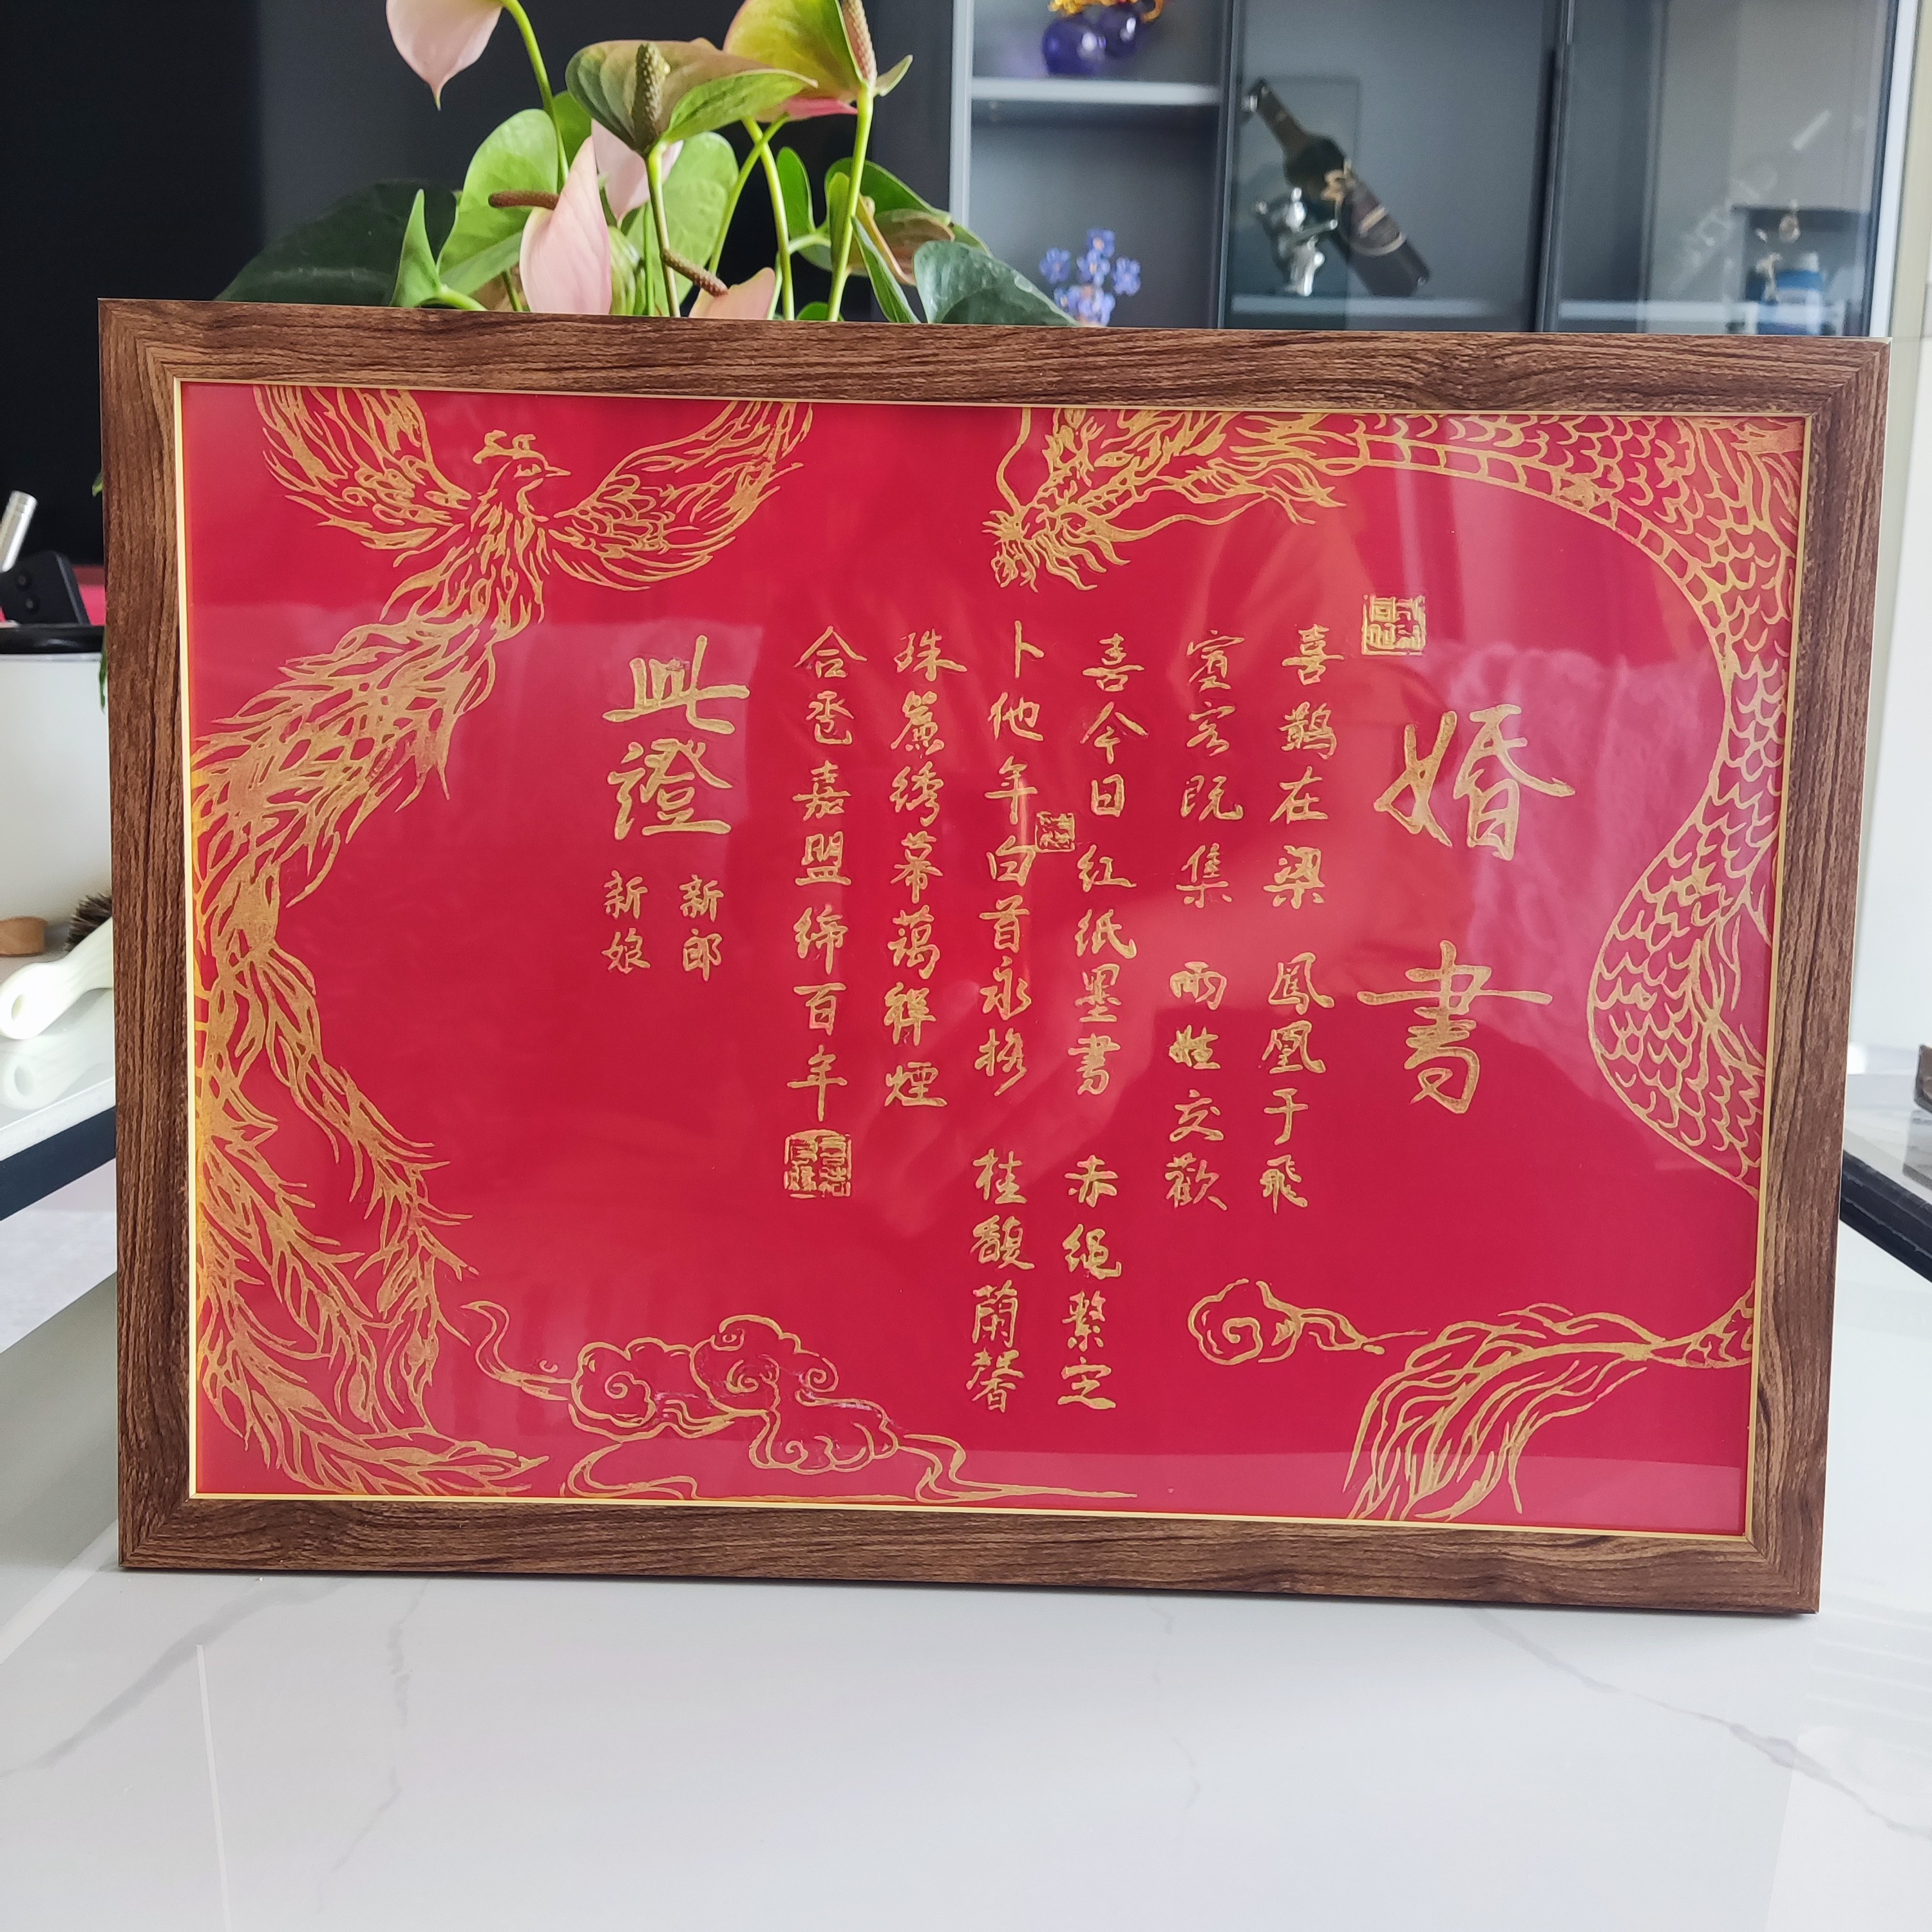 婚書
喜鵲在梁 鳳凰于飛
賓客既集 兩姓交歡
喜今日 红紙墨書 赤繩繫定
卜他年白首永携 桂馥蘭馨
珠簾绣幕藹祥煙
合卺嘉盟缔百年
此證
新郎
新娘